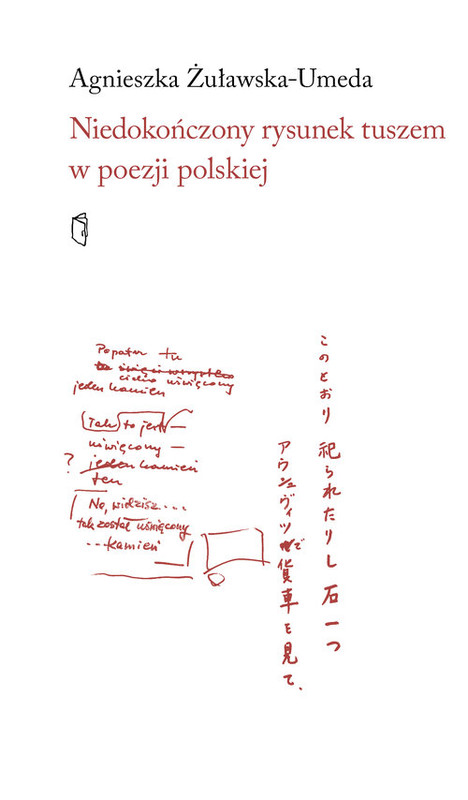 Agnieszka Żuławska-Umeda
Niedokończony rysunek tuszem
w poezji polskiej
Popatrz tu
to święci wszystko
cicho uświęcony
jeden kamień
(Tak) to jest —
uświęcony —
? jeden kamień
ten
No, widzisz...
tak został uświęcony
...kamień
このとおり 祀られたりし 石一つ
アウシュヴィツで貨車を見て、